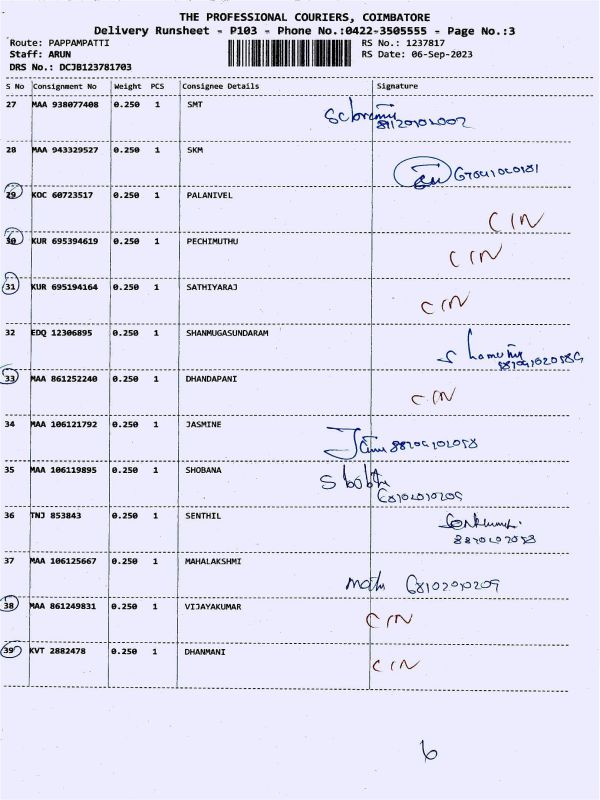 THE PROFESSIONAL COURIERS, COIMBATORE
Delivery Runsheet - P103 - Phone No.:0422-3505555 - Page No.:3
Route: PAPPAMPATTI RS No.: 1237817
Staff: ARUN RS Date: 06-Sep-2023
DRS No.: DCJB123781703
S No Consignment No Weight PCS Consignee Details Signature
27 MAA 938077408 0.250 1 SMT
28 MAA 943329527 0.250 1 SKM
29 KDC 60723517 0.250 1 PALANIVEL CIN
30 KUR 695394619 0.250 1 PECHIMUTHU CIN
31 KUR 695194164 0.250 1 SATHIYARAJ CIN
32 EDQ 12306895 0.250 1 SHANMUGASUNDARAM
33 MAA 861252240 0.250 1 DHANDAPANI CIN
34 MAA 106121792 0.250 1 JASMINE
35 MAA 106119895 0.250 1 SHOBANA
36 TNJ 853843 0.250 1 SENTHIL
37 MAA 106125667 0.250 1 MAHALAKSHMI
38 MAA 861249831 0.250 1 VIJAYAKUMAR CIN
39 KVT 2882478 0.250 1 DHANMANI CIN
6